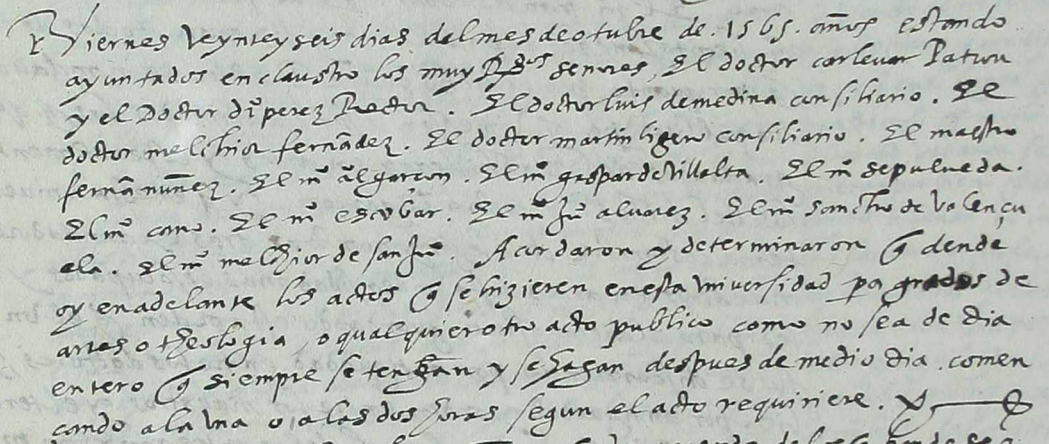 Viernes veynte y seis dias del mes de otubre de .1565. años estando
ayuntados en claustro los muy Rdos señores, El doctor carlevar Patron
y el Doctor di° perez Rector. El doctor luis de medina consiliario. El
doctor melchior fernādez. El doctor martin ligero consiliario. El maestro
fernā nuñez. El m° al garçon. El m° gaspar de Villalta. El m° sepulueda.
El m° cano. El m° escobar. El m° Ju° alvarez. El m° sancho de valençu
ela. El m° melchior de san Ju°. Acordaron y determinaron q dende
oy en adelante los actos q se hizieren en esta universidad pa grados de
artes o theologia, o qualquier otro acto publico como no sea de dia
entero q siempre se tengan y se hagan despues de medio dia. comen
cando a la una o, a las dos horas segun el acto requiriere.